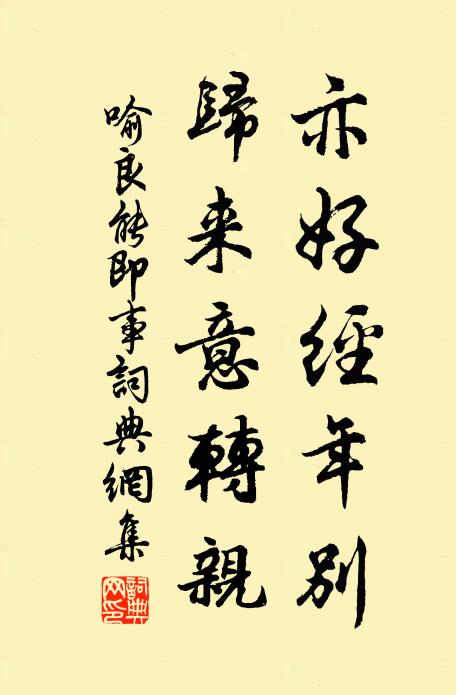 亦好經年别
歸来意轉親
喻良能即事詞典網集
詞典网印